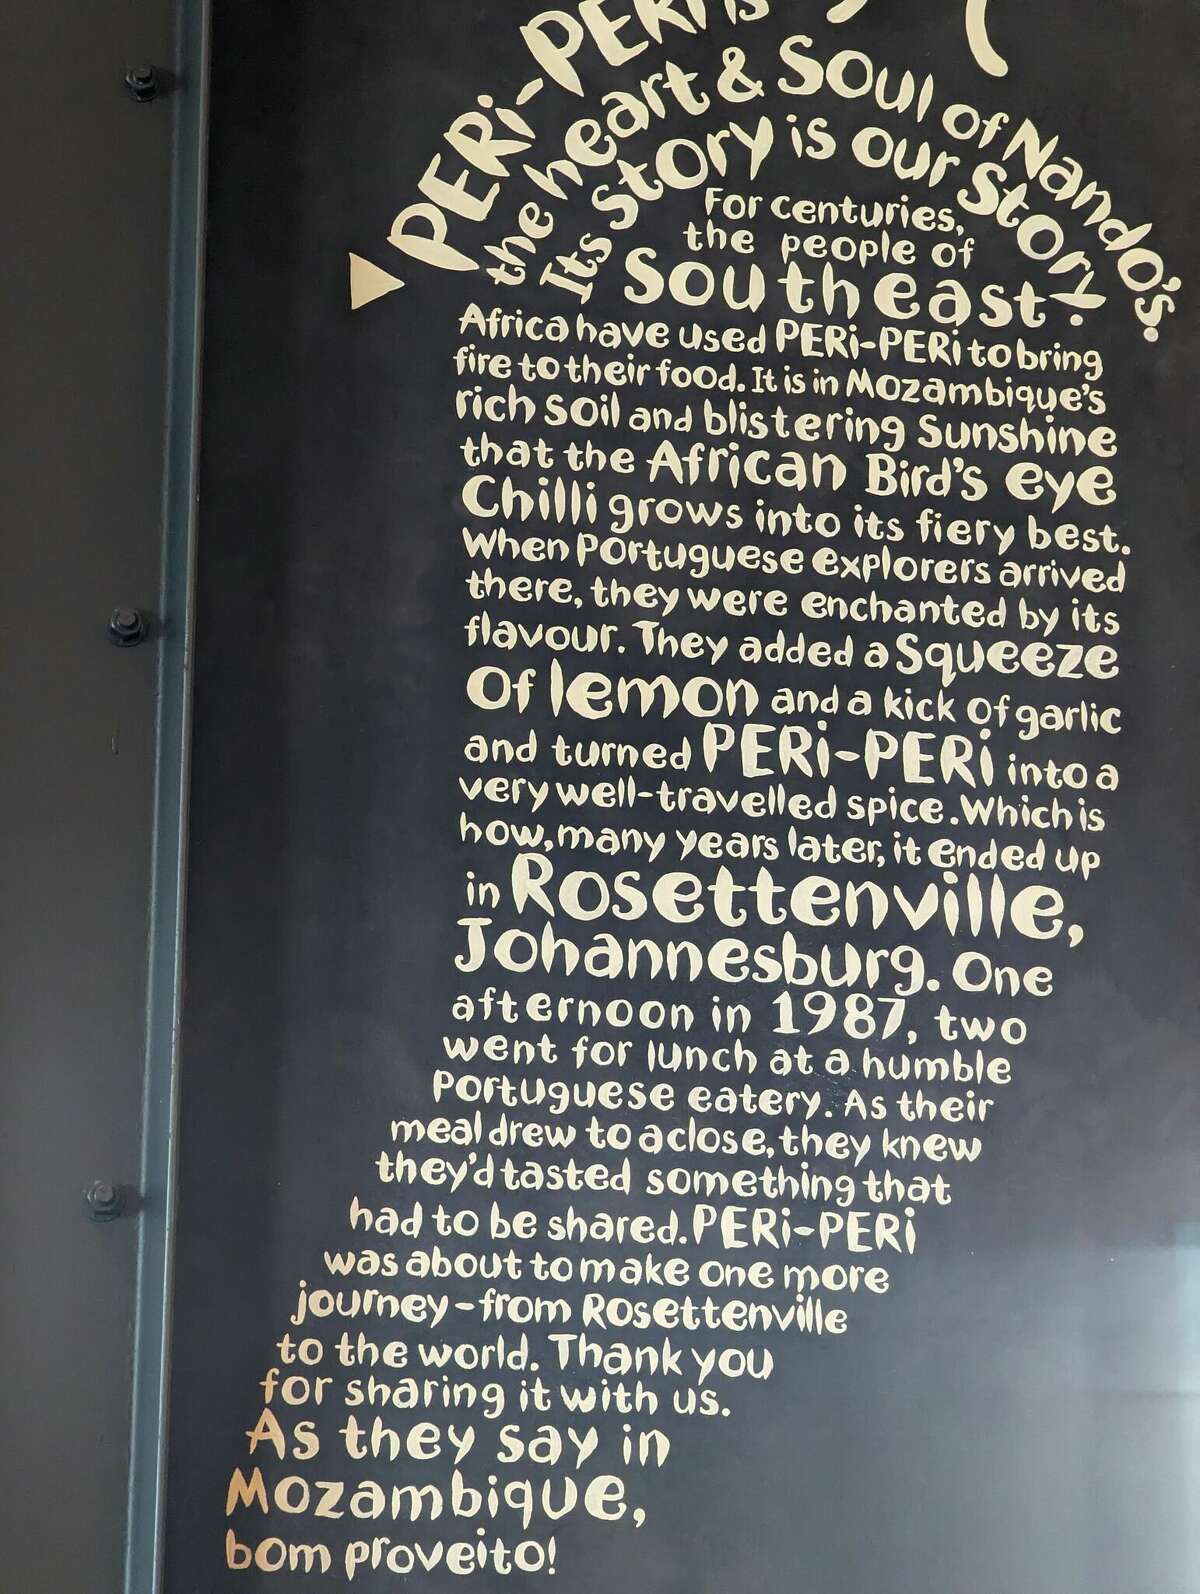 PERi-PERi is
the heart & Soul of Nando's.
Its Story is our Story.
For centuries,
the people of
South east
Africa have used PERi-PERi to bring
fire to their food. It is in Mozambique's
rich soil and blistering Sunshine
that the African Bird's eye
Chilli grows into its fiery best.
When Portuguese explorers arrived
there, they were enchanted by its
flavour. They added a Squeeze
Of lemon and a kick of garlic
and turned PERi-PERi into a
very well-travelled spice. Which is
how, many years later, it ended up
in Rosettenville,
Johannesburg. One
afternoon in 1987, two
went for lunch at a humble
Portuguese eatery. As their
meal drew to a close, they knew
they'd tasted something that
had to be shared. PERi-PERi
was about to make one more
journey-from Rosettenville
to the world. Thank you
for sharing it with us.
As they say in
Mozambique,
bom proveito!